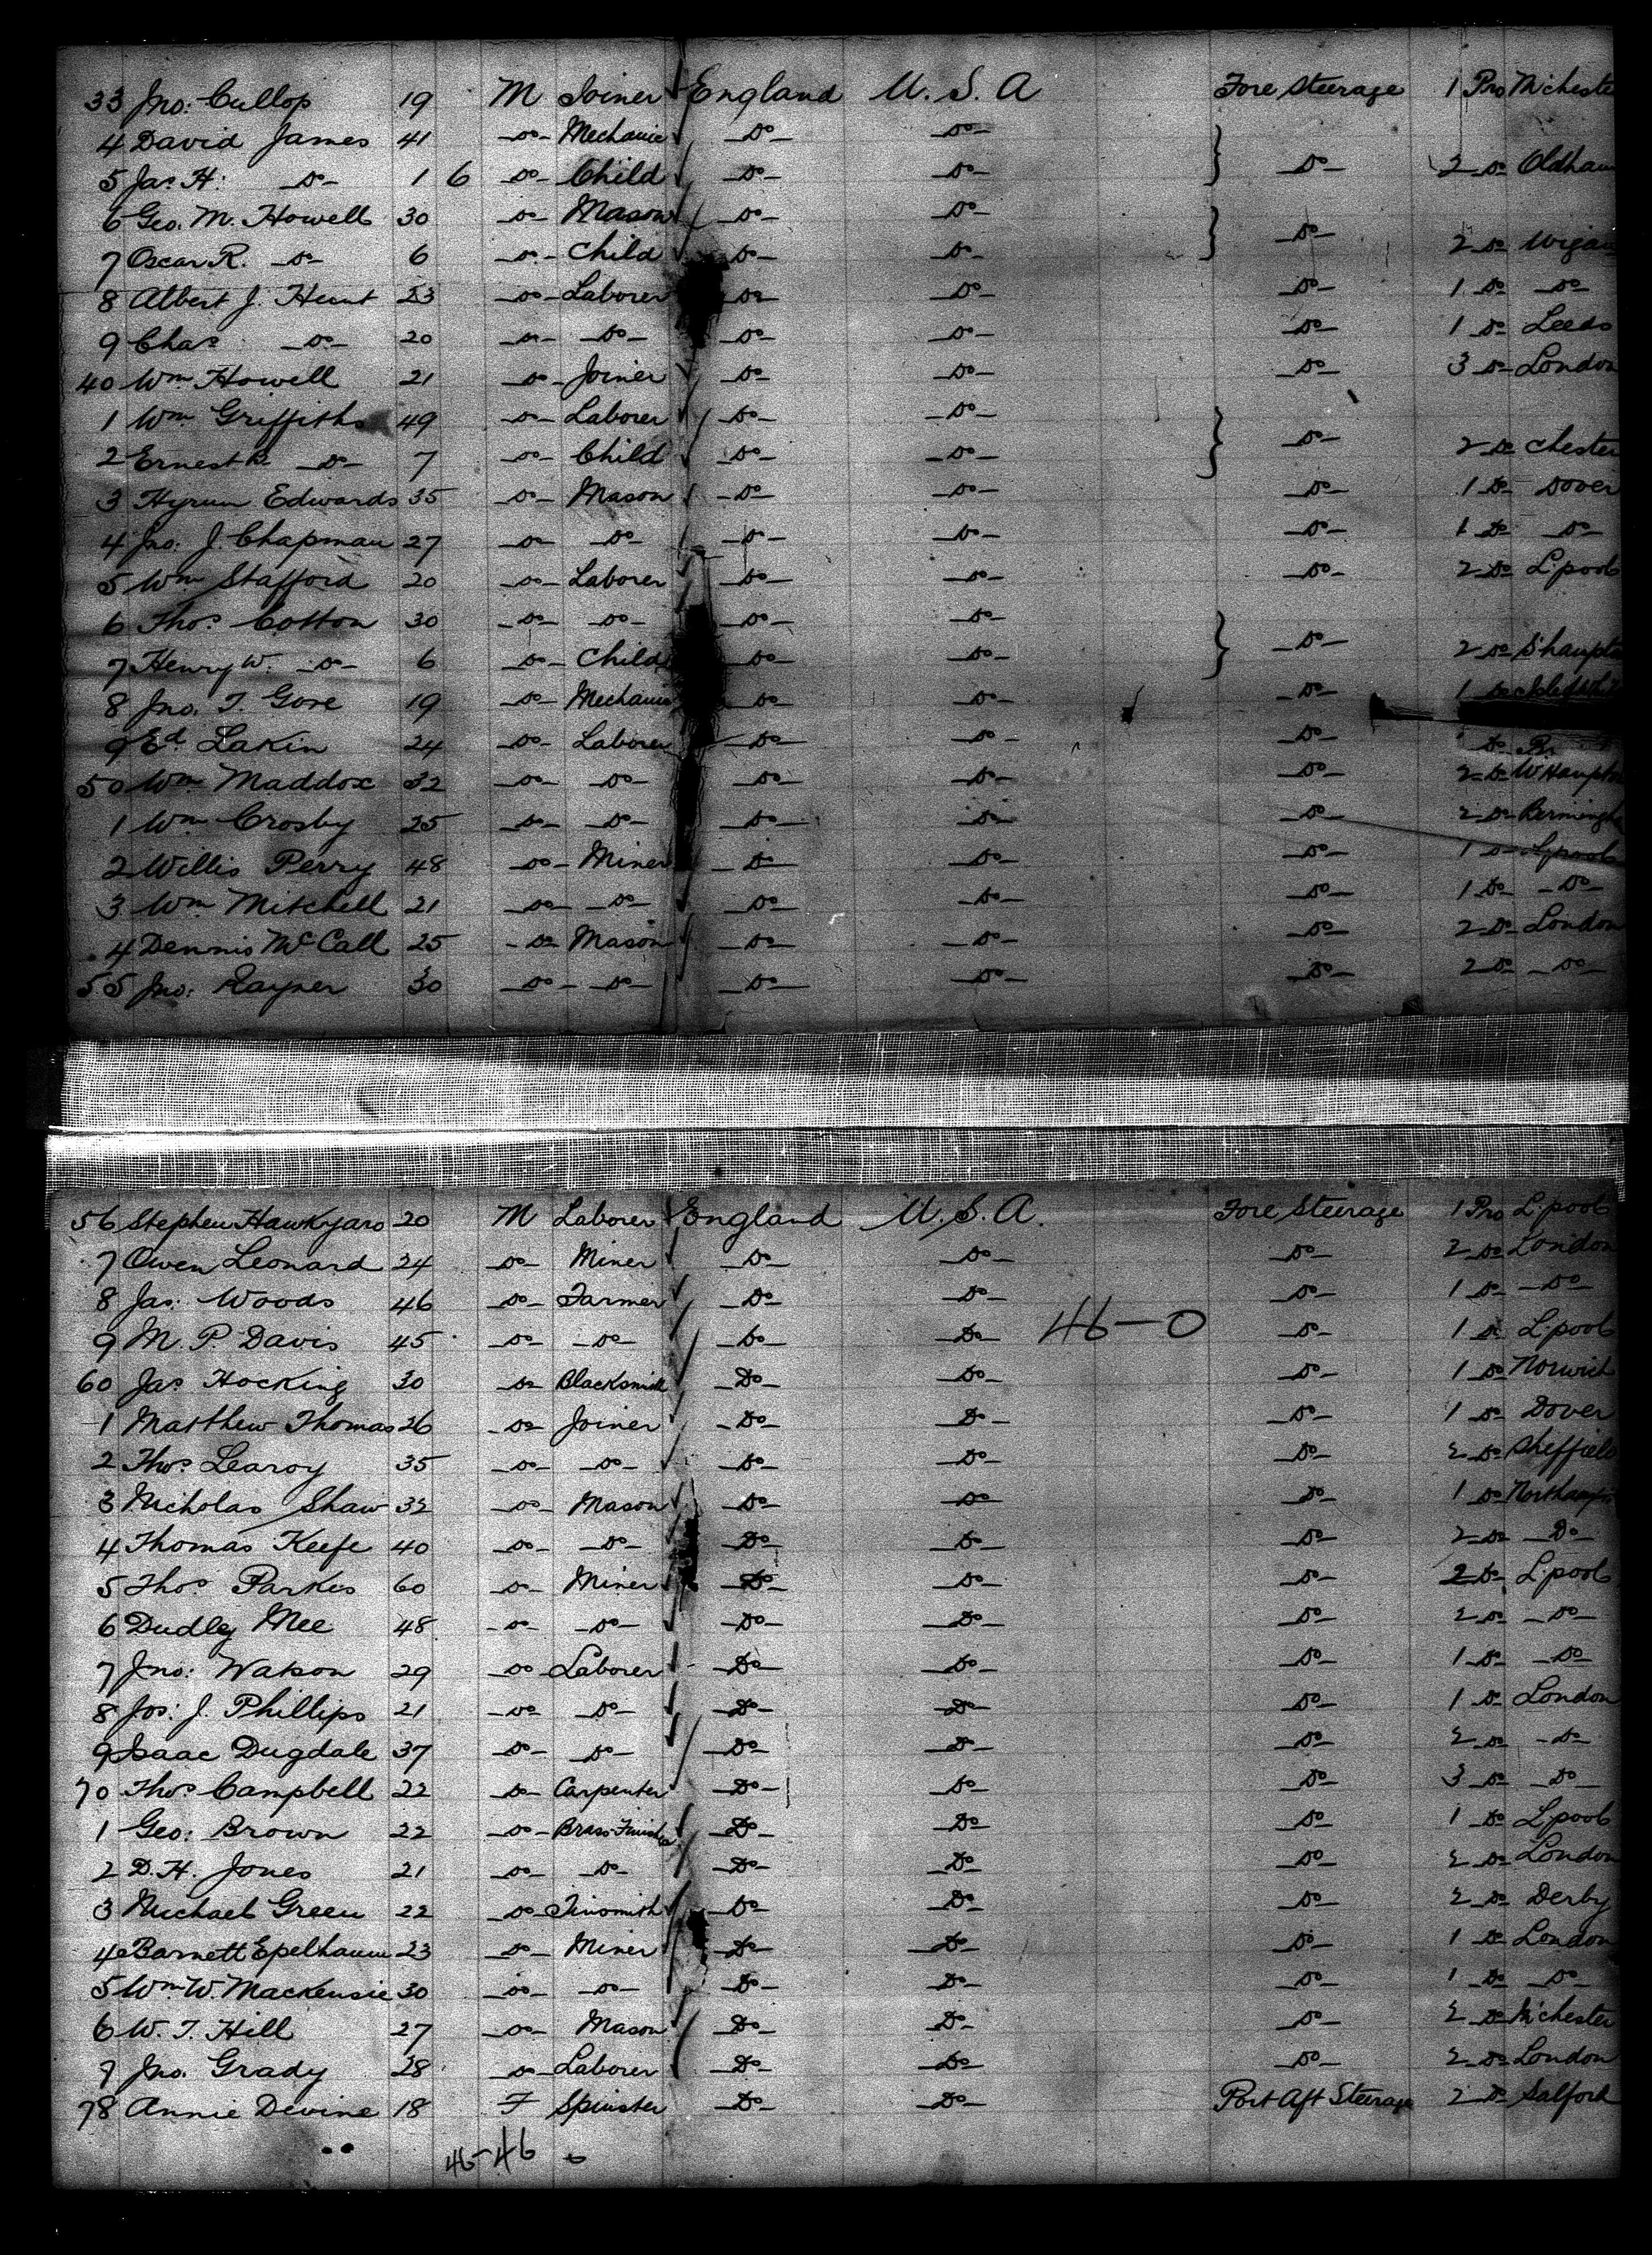 33 Jno: Cullop 19 M Joiner England U.S.A Fore Steerage 1 Pro M'cheste
4 David James 41 -do- Mechanic -do- -do-
5 Jas H: -do- 1 6 -do- Child -do- -do- } -do- 2 do Oldham
6 Geo. M. Howell 30 -do- Mason -do- -do-
7 Oscar R. -do- 6 -do- Child -do- -do- } -do- 2 do Wigan
8 Albert J. Hunt 23 -do- Laborer do -do- -do- 1 do -do-
9 Chas -do- 20 -do- -do- -do- -do- -do- 1 do Leeds
40 Wm Howell 21 -do- Joiner -do- -do- -do- 3 do London
1 Wm Griffiths 49 -do- Laborer -do- -do-
2 Ernest B. -do- 7 -do- Child -do- -do- } -do- 2 do Chester
3 Hyrum Edwards 35 -do- Mason -do- -do- -do- 1 do Dover
4 Jno: J. Chapman 27 -do- -do- -do- -do- -do- 1 do -do-
5 Wm Stafford 20 -do- Laborer -do- -do- -do- 2 do L'pool
6 Thos Cotton 30 -do- -do- -do- -do-
7 Henry W. -do- 6 -do- Child -do- -do- } -do- 2 do S'hampto
8 Jno. T. Gore 19 -do- Mechanic -do- -do- -do- 1 do
9 Ed Lakin 24 -do- Laborer -do- -do- -do- do
50 Wm Maddox 32 -do- -do- -do- -do- -do- 2 do W'Hampto
1 Wm Crosby 25 -do- -do- -do- -do- -do- 2 do Birmingh
2 Willis Perry 48 -do- Miner -do- -do- -do- 1 do L'pool
3 Wm Mitchell 21 -do- -do- -do- -do- -do- 1 do -do-
4 Dennis McCall 25 -do- Mason -do- -do- -do- 2 do London
55 Jno: Rayner 30 -do- -do- -do- -do- -do- 2 do -do-
56 Stephen Hawkyard 20 M Laborer England U.S.A. Fore Steerage 1 Pro L'pool
7 Owen Leonard 24 -do- Miner -do- -do- -do- 2 do London
8 Jas: Woods 46 -do- Farmer -do- -do- -do- 1 do -do-
9 M. P. Davis 45 -do- -do- -do- -do- 46-0 -do- 1 do L'pool
60 Jas Hocking 30 -do- Blacksmith -do- -do- -do- 1 do Norwich
1 Matthew Thomas 26 -do- Joiner -do- -do- -do- 1 do Dover
2 Thos Learoy 35 -do- -do- -do- -do- -do- 2 do Sheffield
3 Nicholas Shaw 32 -do- Mason -do- -do- -do- 1 do Northampt
4 Thomas Keefe 40 -do- -do- -do- -do- -do- 2 do -do-
5 Thos Parkes 60 -do- Miner -do- -do- -do- 2 do L'pool
6 Dudley Mee 48 -do- -do- -do- -do- -do- 2 do -do-
7 Jno: Watson 29 -do- Laborer -do- -do- -do- 1 do -do-
8 Jos: J. Phillips 21 -do- -do- -do- -do- -do- 1 do London
9 Isaac Dugdale 37 -do- -do- -do- -do- -do- 2 do -do-
70 Thos Campbell 22 -do- Carpenter -do- -do- -do- 3 do -do-
1 Geo: Brown 22 -do- Brass Finisher -do- -do- -do- 1 do L'pool
2 D. H. Jones 21 -do- -do- -do- -do- -do- 2 do London
3 Michael Green 22 -do- Tinsmith -do- -do- -do- 2 do Derby
4 Barnett Epelhaum 23 -do- Miner -do- -do- -do- 1 do London
5 Wm W. Mackensie 30 -do- -do- -do- -do- -do- 1 do -do-
6 W. T. Hill 27 -do- Mason -do- -do- -do- 2 do M'chester
7 Jno. Grady 28 -do- Laborer -do- -do- -do- 2 do London
78 Annie Devine 18 F Spinster -do- -do- Port Aft Steerage 2 do Salford
46-46